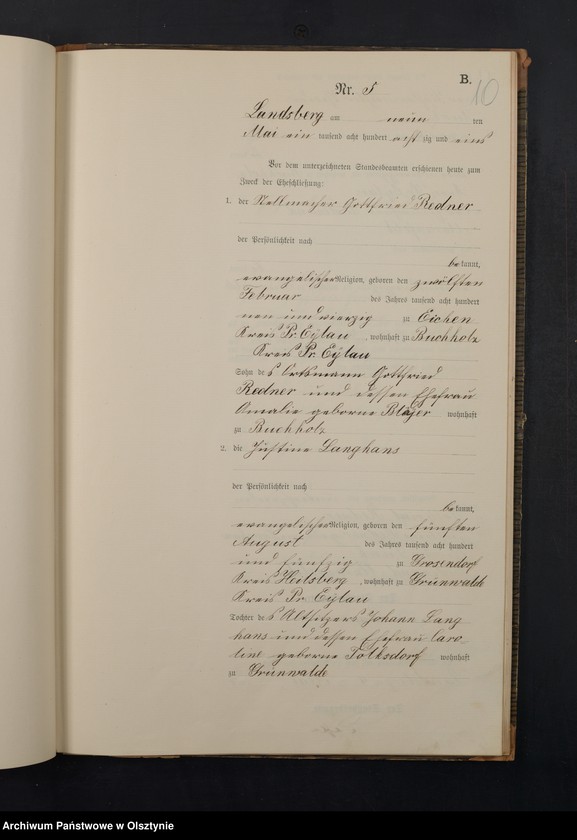 B.
10
Nr. 5
Landsberg am neun ten
Mai ein tausend acht hundert acht zig und eins
Vor dem unterzeichneten Standesbeamten erschienen heute zum
Zweck der Eheschließung:
1. der Stellmacher Gottfried Redner
der Persönlichkeit nach
be kannt,
evangelischer Religion, geboren den zwölften
Februar des Jahres tausend acht hundert
neun und vierzig zu Eichen
Kreis Pr. Eylau, wohnhaft zu Buchholz
Kreis Pr. Eylau
Sohn des Gottfried
Redner und dessen Ehefrau
Amalie geborne wohnhaft
zu Buchholz
2. die Justine Langhans
der Persönlichkeit nach
be kannt,
evangelischer Religion, geboren den fünften
August des Jahres tausend acht hundert
und fünfzig zu Grosendorf
Kreis Heilsberg, wohnhaft zu Grünwalde
Kreis Pr. Eylau
Tochter des Altsitzers Johann Lang
hans und dessen Ehefrau Caro
line geborne Tolksdorf wohnhaft
zu Grünwalde
Archiwum Państwowe w Olsztynie